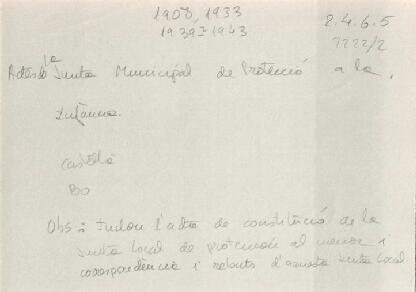 1908, 1933
1939-1943
2.4.6.5
7222/2
Actes de la Junta Municipal de Protecció a la
Infància.
Castellà
Bo
Obs: Inclou l'acta de constitució de la
Junta Local de protección al menor i
correspondència i rebuts d'aquesta Junta Local